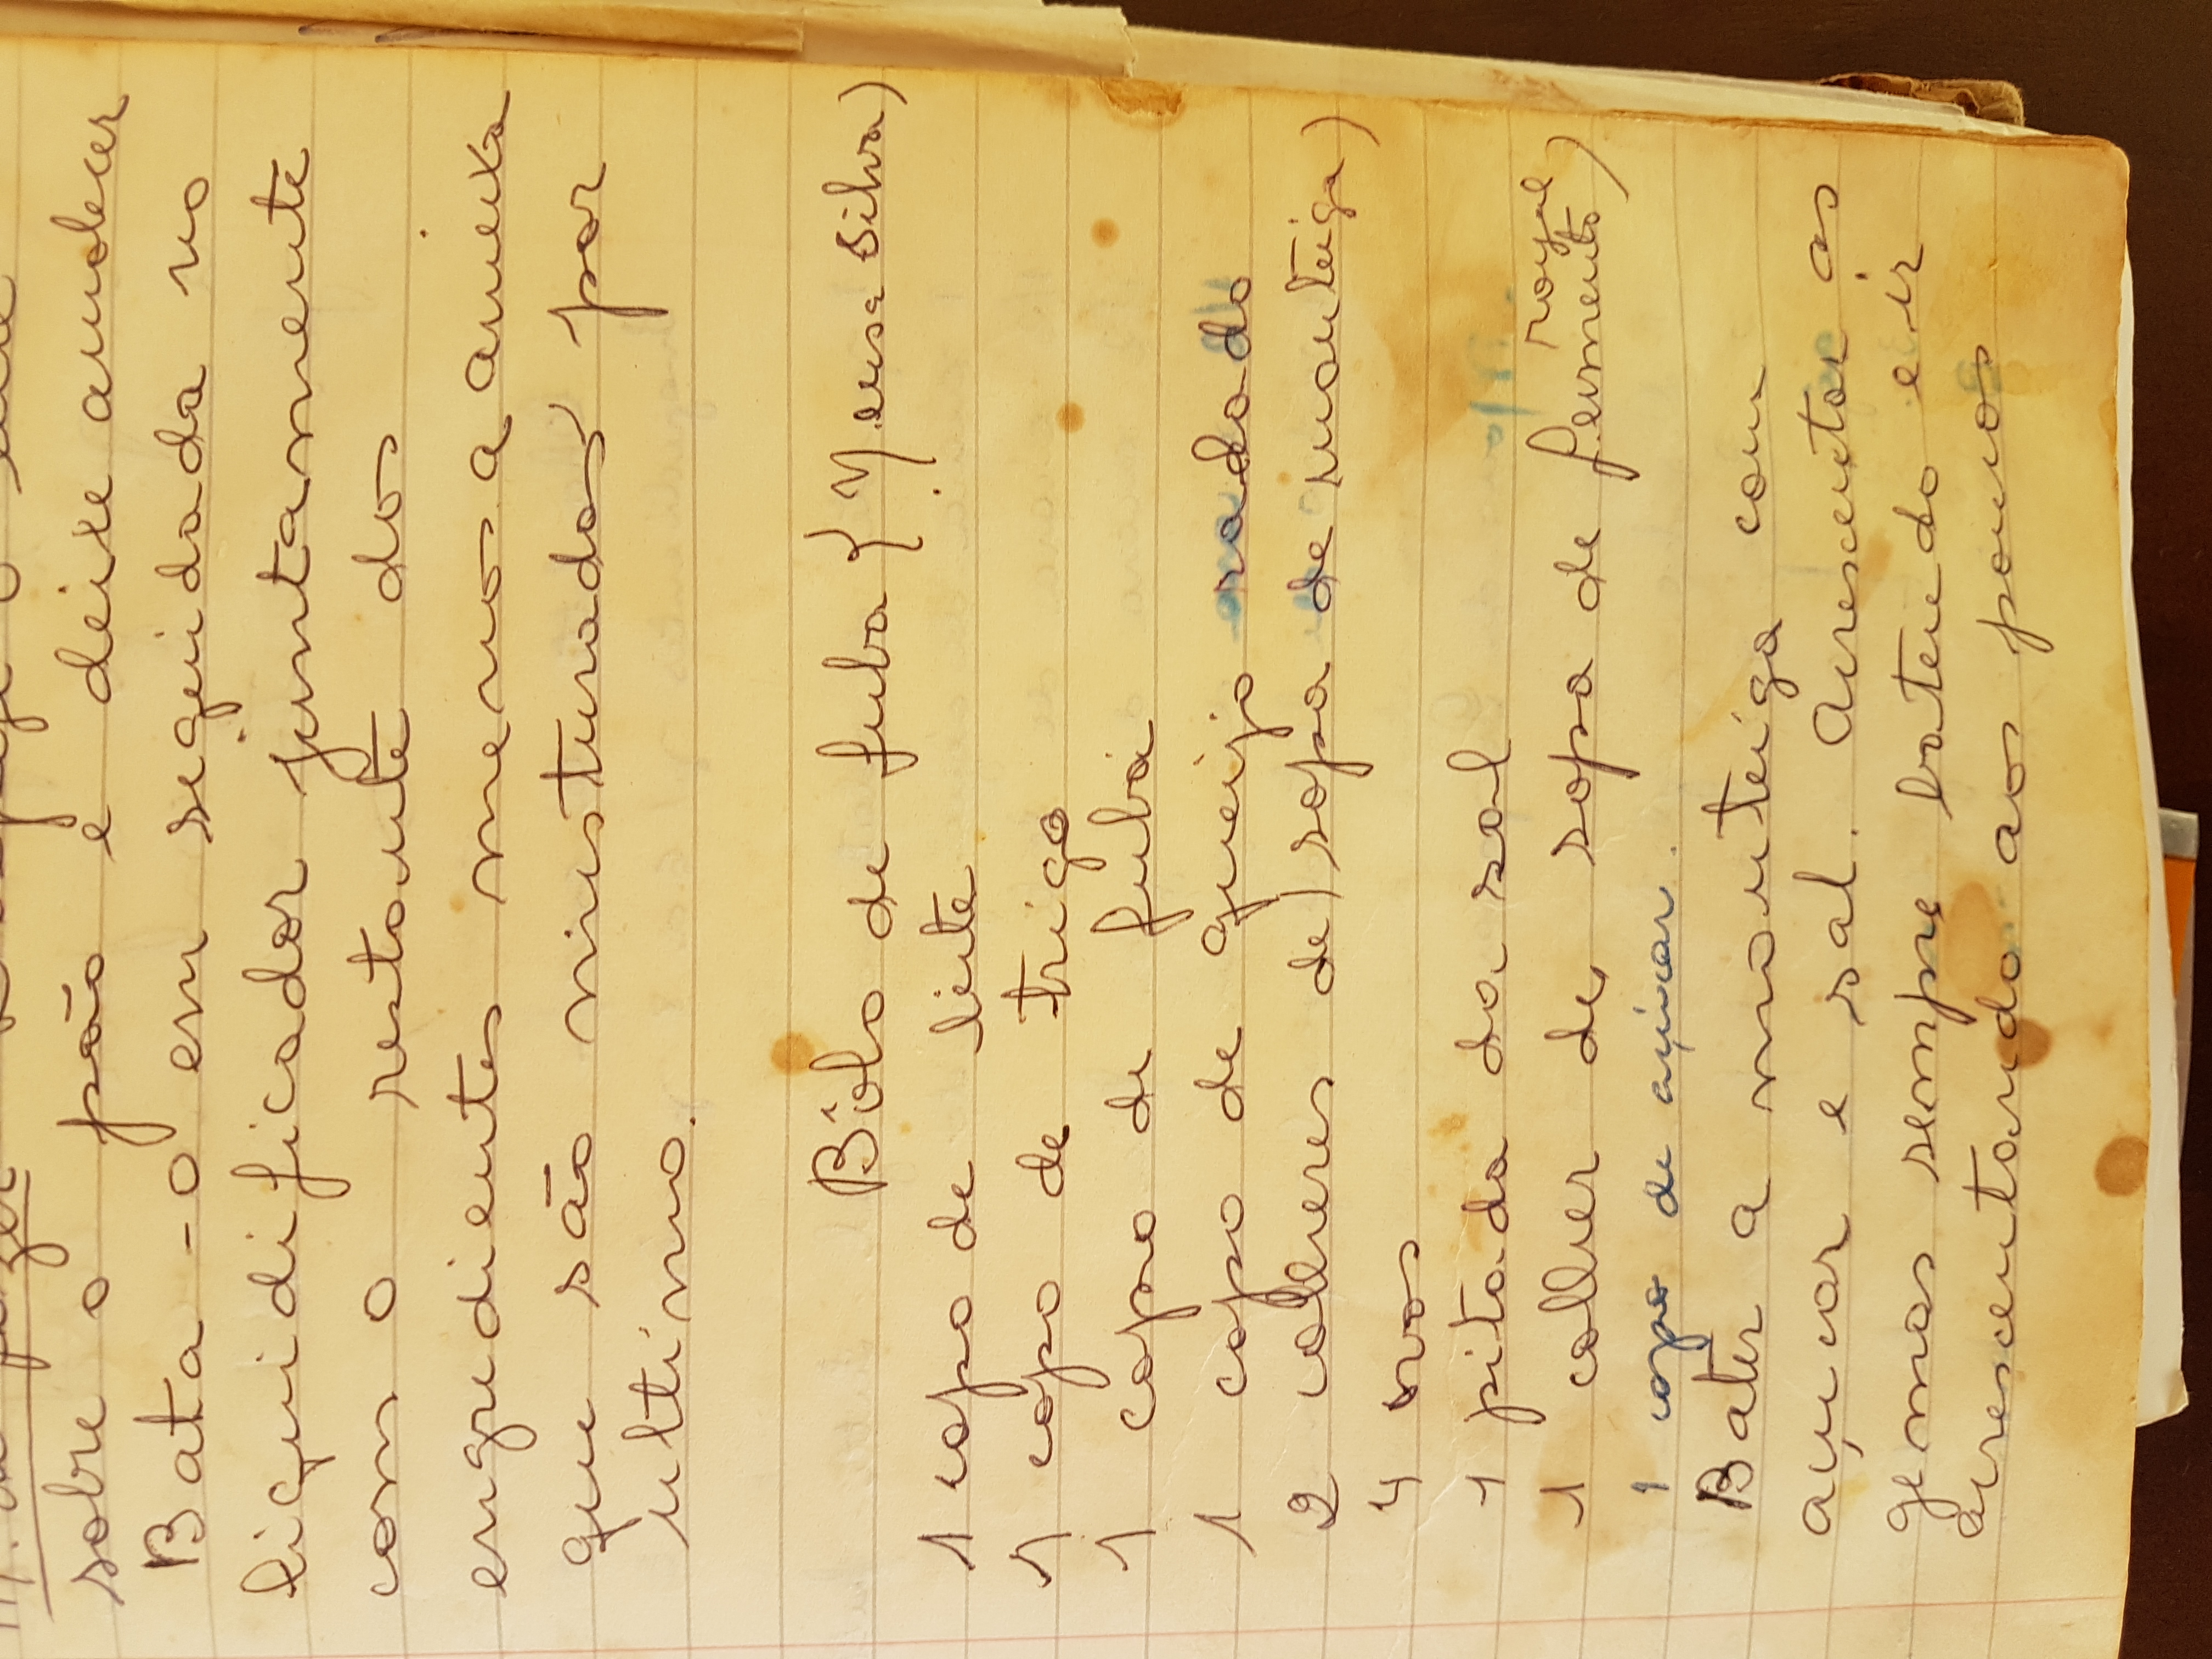 M. de fazer Despeje o leite
sobre o pão e deixe amolecer
Bata-o em seguidada no
liquidificador juntamente
com o restante dos
engredientes menos a ameixa
que são misturados por
ultimo.
Bôlo de fuba (Neusa Silva)
1 copo de leite
1 copo de trigo
1 copo de fubá
1 copo de queijo radado
2 colheres de (sopa de manteiga)
4 ovos
1 pitada da sal
royal
1 colher de sopa de fermento)
1 copo de açúcar.
Bater a manteiga com
açucar e sal. Acrescentar as
gemas sempre batendo e ir
acrescentando aos poucos